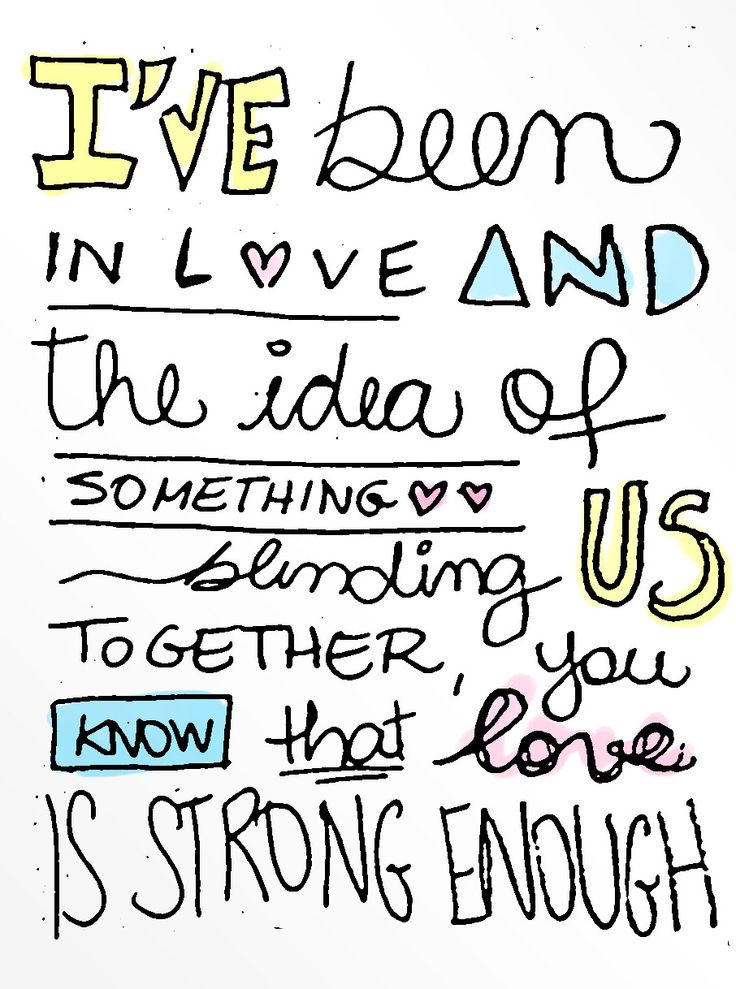 I'VE been
IN LOVE AND
the idea of
SOMETHING
blinding US
TOGETHER, you
KNOW that love
IS STRONG ENOUGH